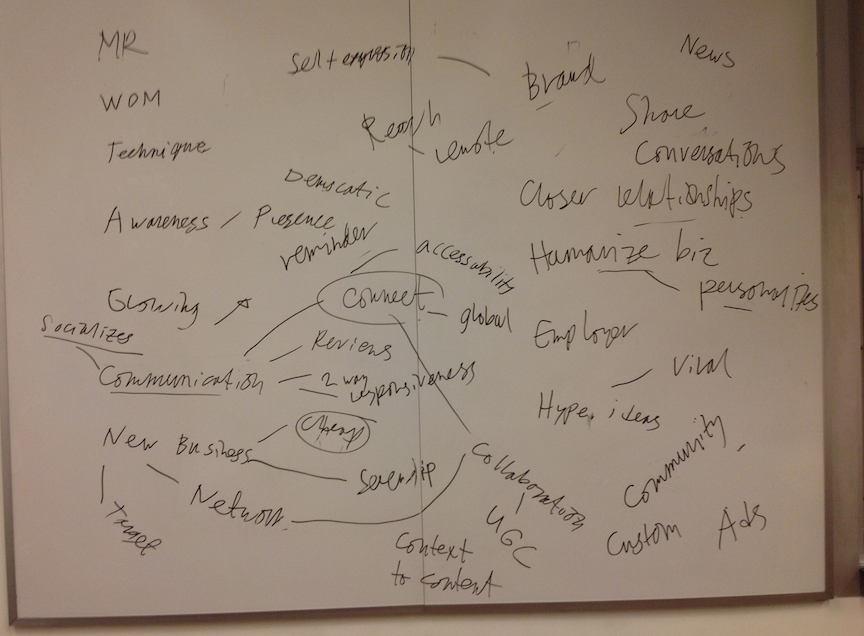 MR
WOM
Technique
Awareness / Presence
reminder
Growing
Socializes
Communication
Reviews
2 way
responsiveness
New Business
Cheap
Network
Target
Self expression
Reach
remote
Democratic
accessability
Connect
global
Collaboration
UGC
Context
to content
Brand
News
Share
Conversations
Closer relationships
Humanize biz
personalities
Employer
Viral
Hype ideas
Community
Custom Ads